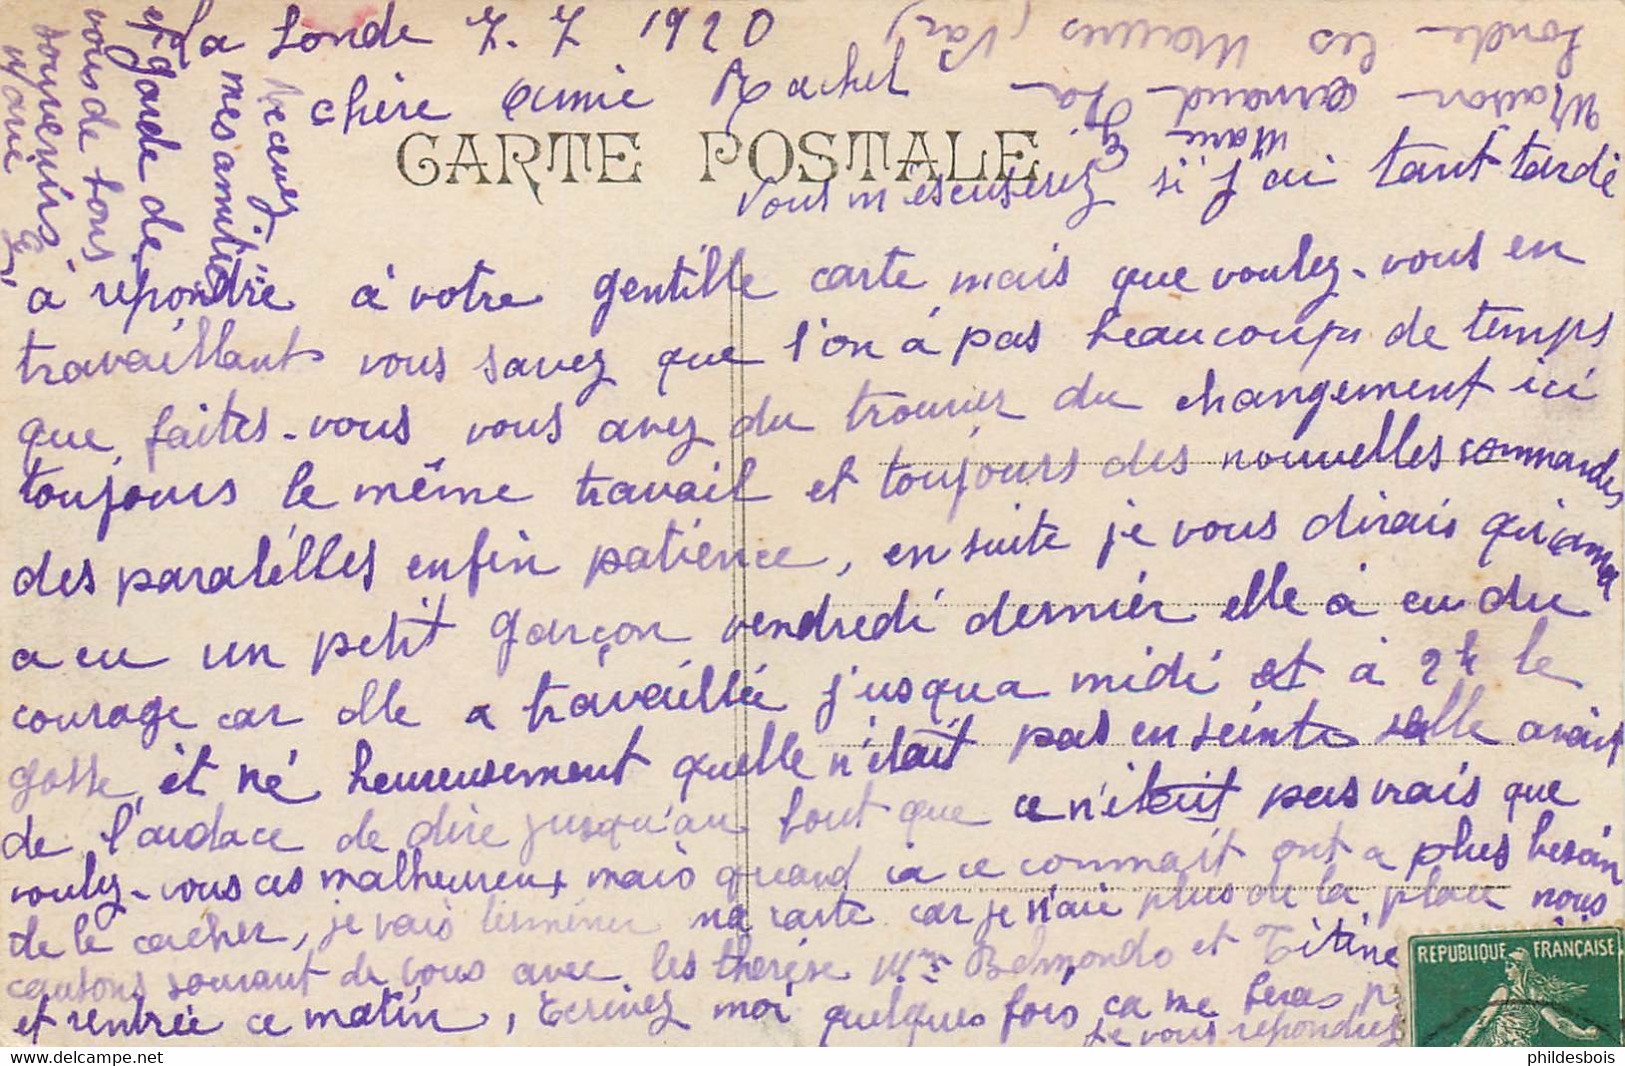 La Londe 7. 7 1920
chère Amie Rachel
CARTE POSTALE
Vous m'éscuserez si j'ai tant tardé
à répondre à votre gentille carte mais que voulez-vous en
travaillant vous savez que l'on à pas beaucoup de temps
que faites-vous vous avez du trouver du changement ici
toujours le même travail et toujours des nouvelles commandes
des paralélles enfin patience, ensuite je vous dirais qu'
a eu un petit garçon vendredi dernier elle à eu du
courage car elle a travaillée jusqua midi et à 2h le
gosse et né heureusement quelle n'était pas enseinte elle avait
de l'audace de dire jusqu'au bout que ce n'était pas vrais que
voulez-vous ces malheureux mais quand ca ce connait ont a plus besoin
de le cacher, je vais terminer ma carte car je n'aie plus de la place nous
causons souvant de vous avec les thérèse Mme Belmondo et Titine
et rentrée ce matin, Ecrivez moi quelques fois ca me feras
je vous répondrez
Recevez
mes amitiés
et garde de
vous de tous
souvenirs
Marie
Marie
Maison Arnaud La
Londe les Maures (Var)
REPUBLIQUE FRANÇAISE
phildesbois